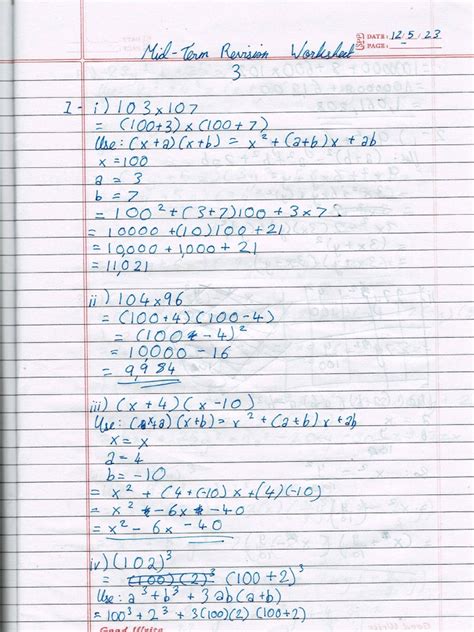 DATE: 12.5.23
PAGE:
Mid-Term Revision Worksheet
3
1- i) 103×107
= (100+3) × (100+7)
Use: (x+a)(x+b) = x² + (a+b)x + ab
x = 100
a = 3
b = 7
= 100² + (3+7)100 + 3×7
= 10000 + (10)100 + 21
= 10,000 + 1,000 + 21
= 11,021
ii) 104×96
= (100+4)(100-4)
= (100 - 4)²
= 10000 - 16
= 9,984
iii) (x+4)(x-10)
Use: (x+a)(x+b) = x² + (a+b)x + ab
x = x
a = 4
b = -10
= x² + (4+(-10)x + (4)(-10)
= x² - 6x - 40
= x² - 6x - 40
iv) (102)³
= (100)(2)³ (100+2)³
Use: a³ + b³ + 3ab(a+b)
= 100³ + 2³ + 3(100)(2)(100+2)
Good Write